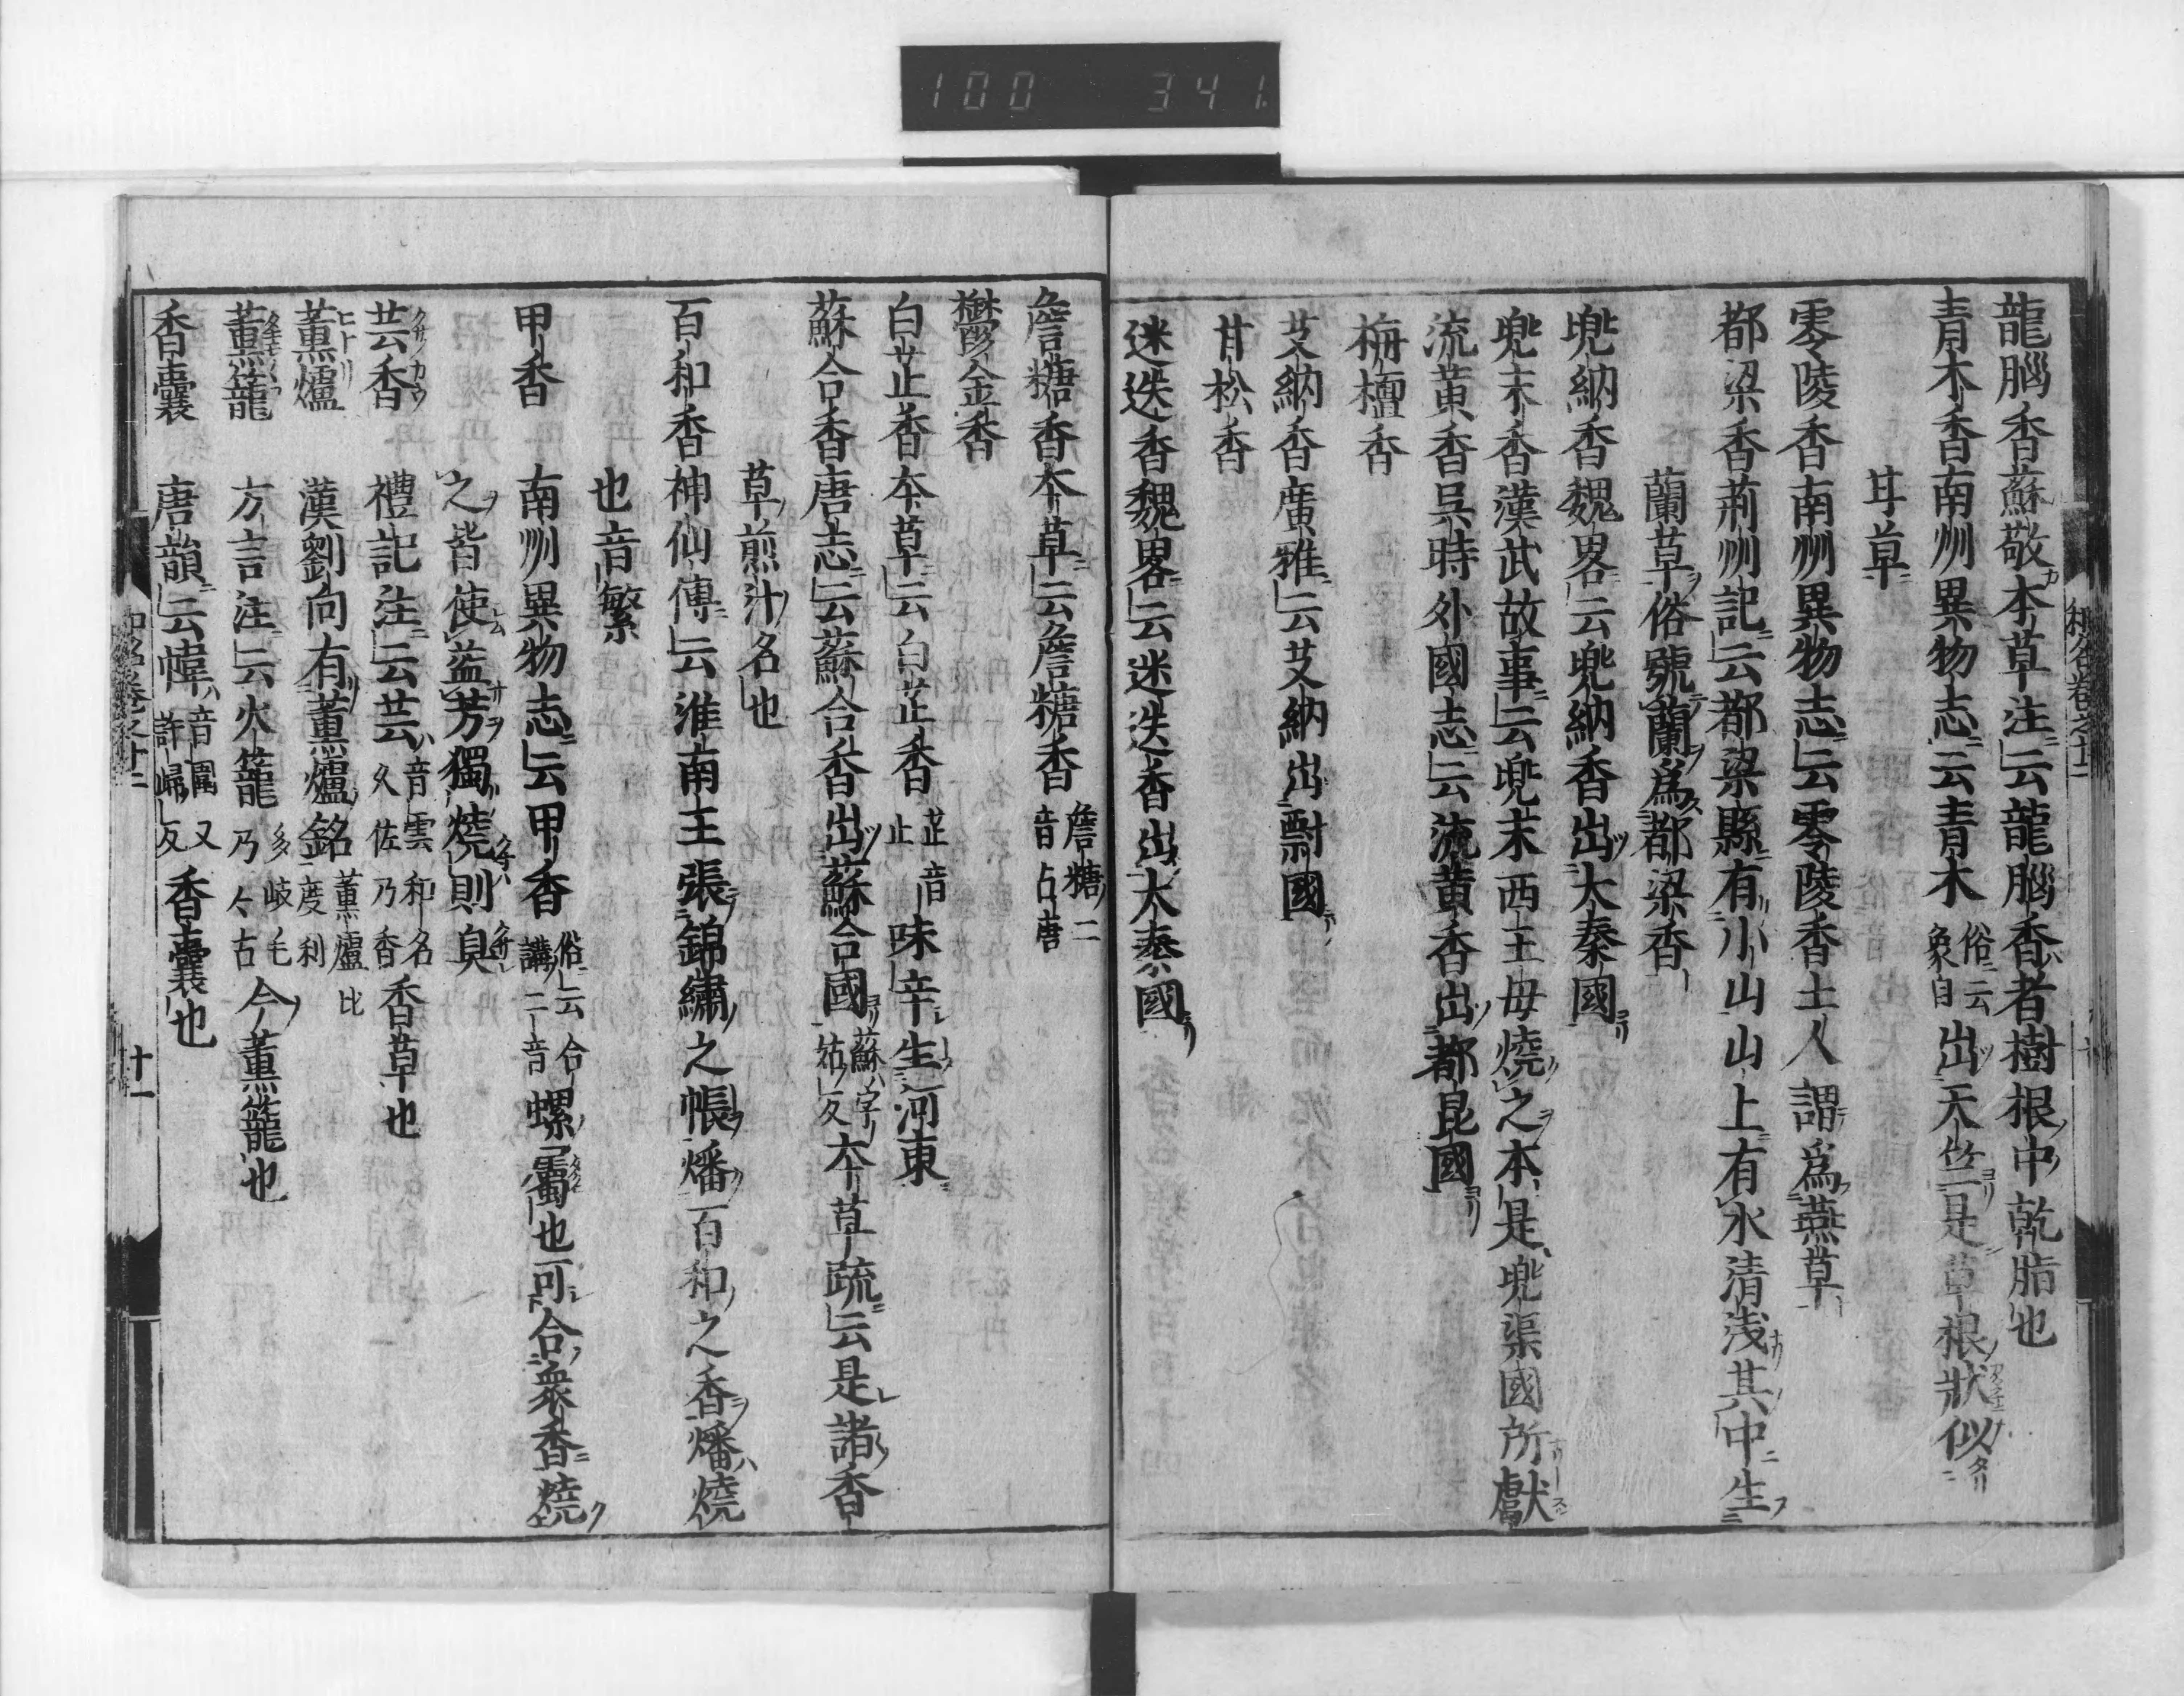 100 341
龍腦香蘇敬本草注云龍腦香者樹根中乾脂也
青木香南州異物志云青木俗云象目出天竺是草根狀似
甘草
零陵香南州異物志云零陵香土人謂爲燕草
都梁香荊州記云都梁縣有小山山上有水清浅其中生
蘭草俗號蘭爲都梁香
兜納香魏畧云兜納香出大秦國
兜末香漢武故事云兜末西王母燒之本是兜渠國所獻
流黄香呉時外國志云流黄香出都昆國
栴檀香
艾納香廣雅云艾納出剽國
甘松香
迷迭香魏畧云迷迭香出大秦國
詹糖香本草云詹糖香詹糖二音占唐
欝金香
白芷香本草云白芷香芷音止味辛生河東
蘇合香唐志云蘇合香出蘇合國蘇字姑反本草疏云是諸香
草煎汁名也
百和香神仙傳云淮南王張錦繡之帳燔百和之香燔燒
也音繁
甲香南州異物志云甲香俗云合講二音螺屬也可合衆香燒
之皆使益芳獨燒則臭
芸香禮記注云芸音雲和名久佐乃香香草也
薫爐漢劉向有薫爐銘薫爐比度利
薫籠方言注云火籠多岐毛乃々古今薫籠也
香囊唐韻云幃音圍又許歸反香囊也